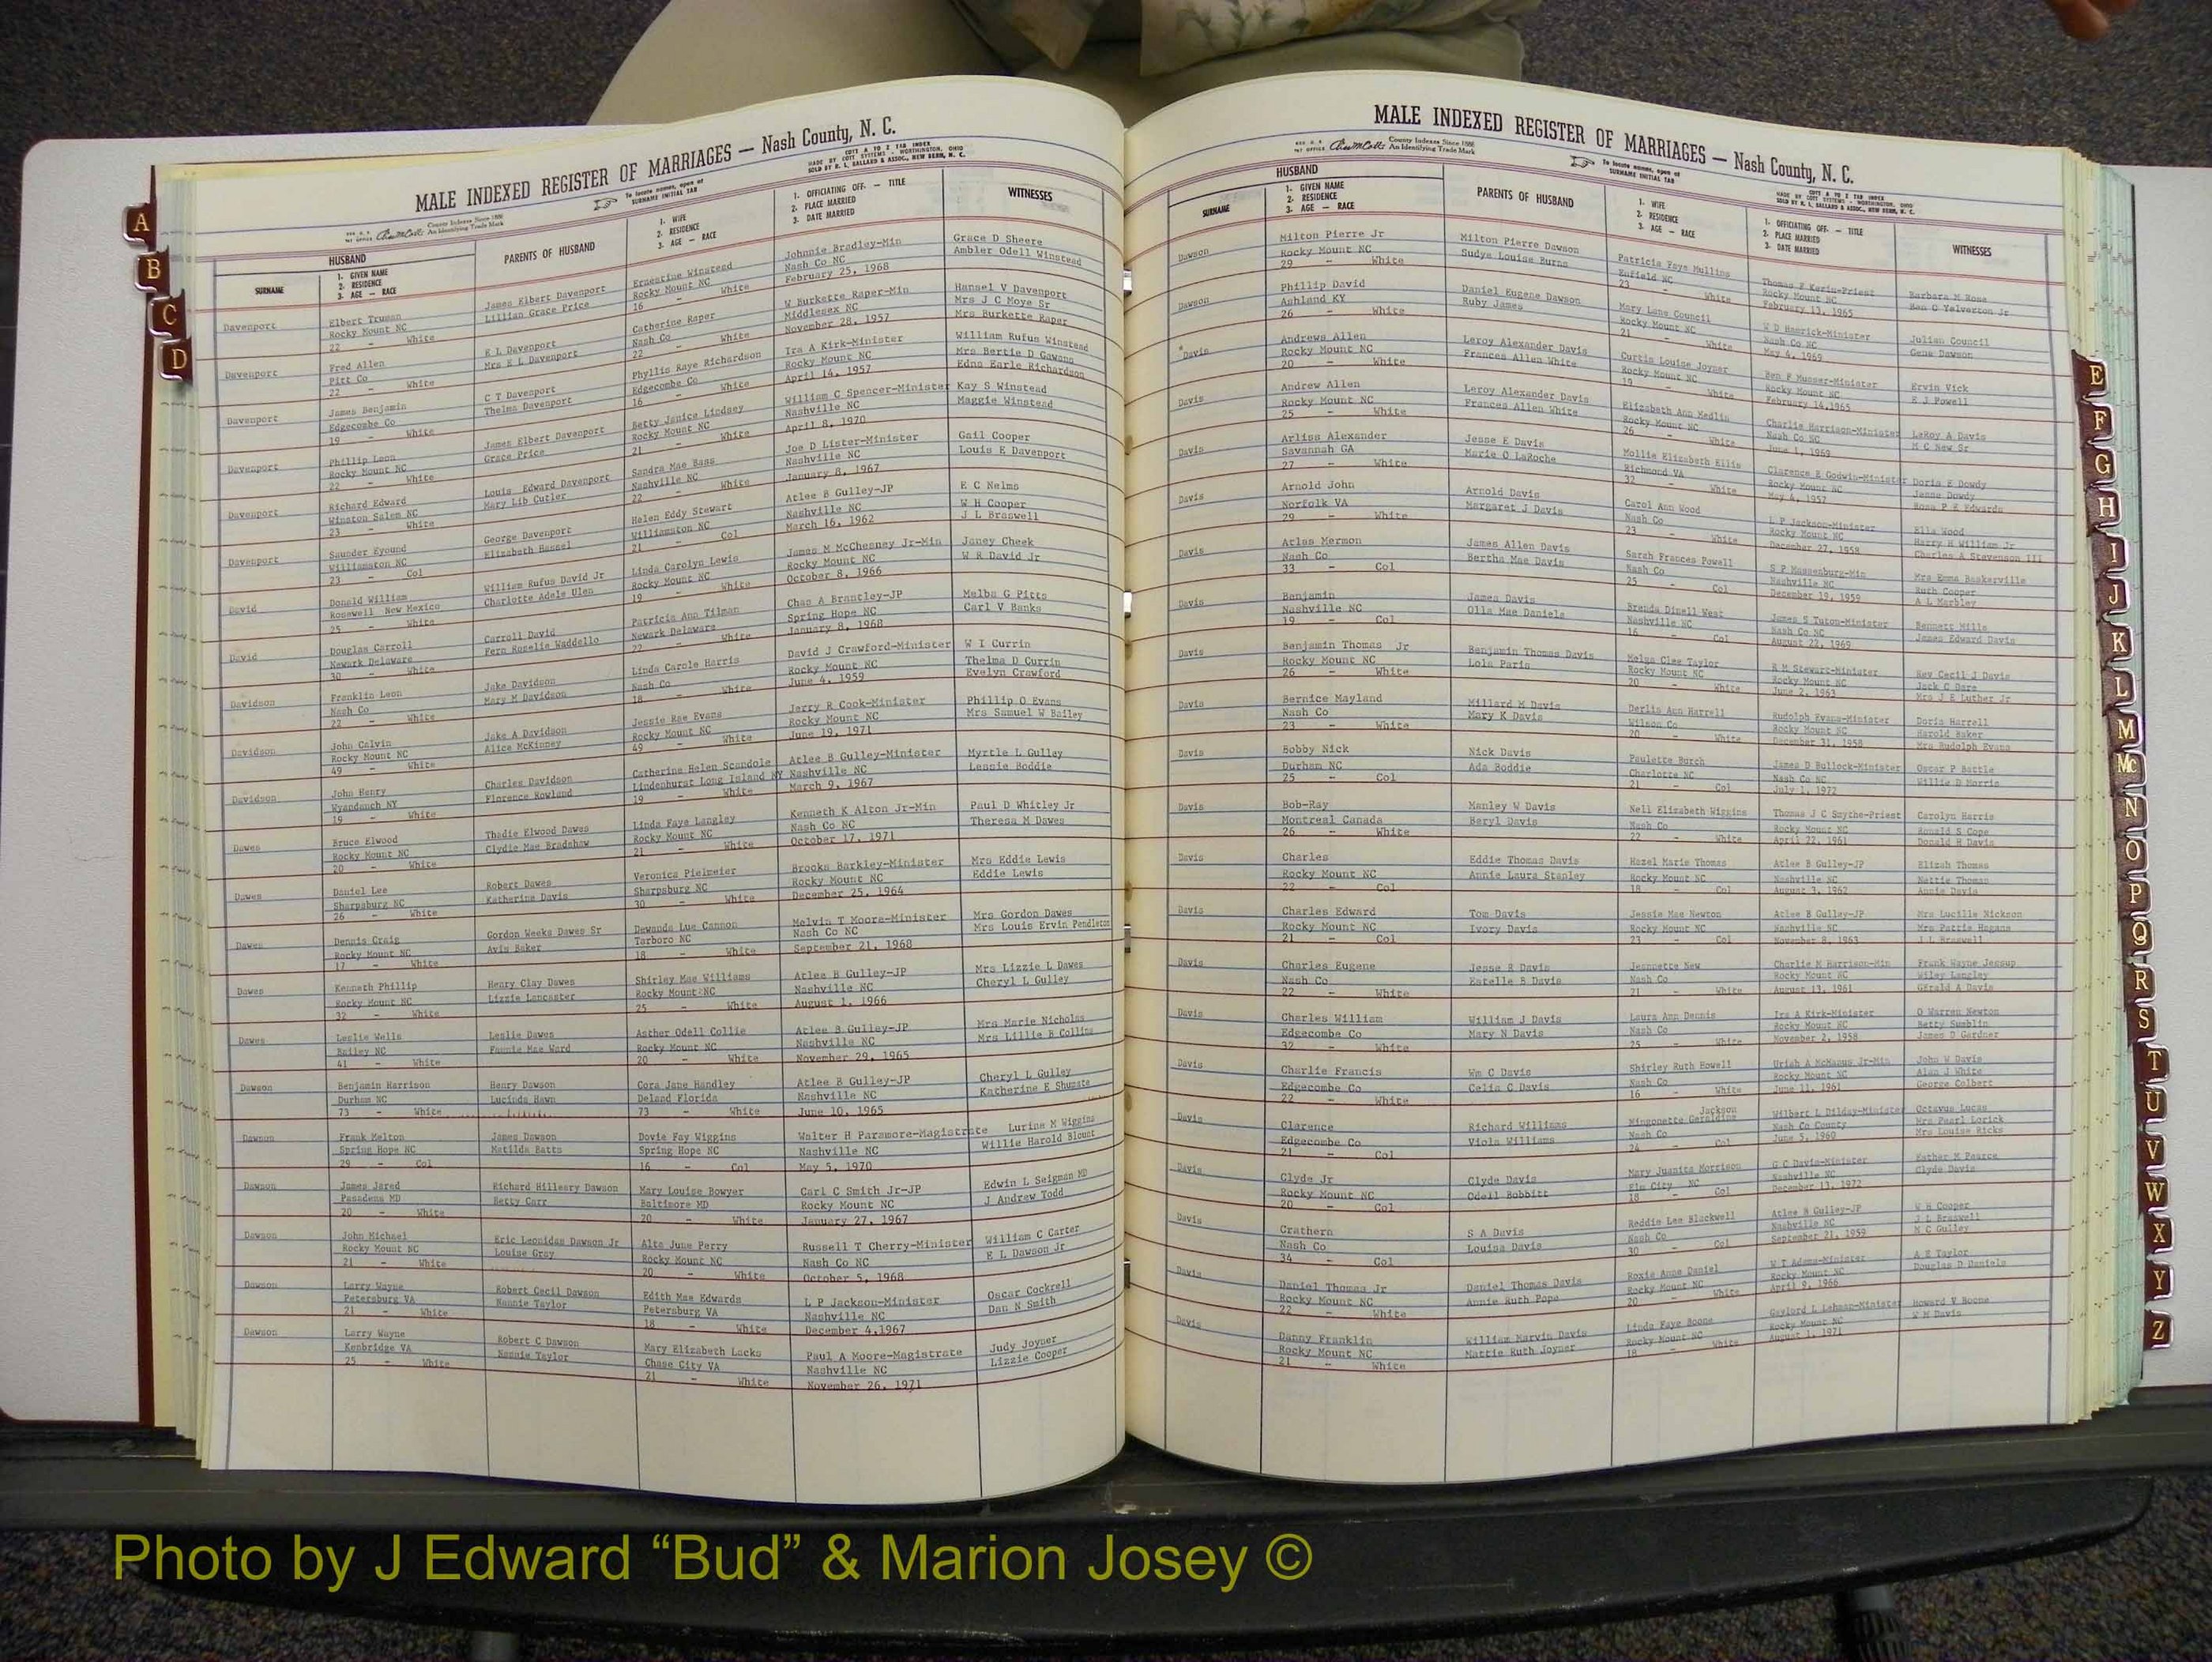 MALE INDEXED REGISTER OF MARRIAGES — Nash County, N. C.
County Indexes Since 1888
An Identifying Trade Mark
To locate names, open at
SURNAME INITIAL TAB
COTT A TO Z TAB INDEX
MADE BY COTT SYSTEMS - WORTHINGTON, OHIO
SOLD BY R. L. BALLARD & ASSOC., NEW BERN, N. C.
HUSBAND
SURNAME
1. GIVEN NAME
2. RESIDENCE
3. AGE — RACE
PARENTS OF HUSBAND
1. WIFE
2. RESIDENCE
3. AGE — RACE
1. OFFICIATING OFF. — TITLE
2. PLACE MARRIED
3. DATE MARRIED
WITNESSES
Davenport Elbert Truman James Elbert Davenport Ernestine Winstead Johnnie Bradley-Min Grace D Sheere
Rocky Mount NC Lillian Grace Price Rocky Mount NC Nash Co NC Ambler Odell Winstead
22 - White 16 - White February 25, 1968
Davenport Fred Allen E L Davenport Catherine Raper W Burkette Raper-Min Hansel V Davenport
Pitt Co Mrs E L Davenport Nash Co Middlesex NC Mrs J C Moye Sr
22 - White 22 - White November 28, 1957 Mrs Burkette Raper
Davenport James Benjamin C T Davenport Phyllis Raye Richardson Ira A Kirk-Minister William Rufus Winstead
Edgecombe Co Thelma Davenport Edgecombe Co Rocky Mount NC Mrs Bertie D Gowans
19 - White 16 - White April 14, 1957 Edna Earle Richardson
Davenport Phillip Leon James Elbert Davenport Betty Janice Lindsey William C Spencer-Minister Kay S Winstead
Rocky Mount NC Grace Price Rocky Mount NC Nashville NC Maggie Winstead
22 - White 21 - White April 8, 1970
Davenport Richard Edward Louis Edward Davenport Sandra Mae Bass Joe D Lister-Minister Gail Cooper
Winston Salem NC Mary Lib Cutler Nashville NC Nashville NC Louis E Davenport
23 - White 22 - White January 8, 1967
Davenport Saunder Eyound George Davenport Helen Eddy Stewart Atlee B Gulley-JP E C Nelms
Williamston NC Elizabeth Hassel Williamston NC Nashville NC W H Cooper
23 - Col 21 - Col March 16, 1962 J L Braswell
David Donald William William Rufus David Jr Linda Carolyn Lewis James M McChesney Jr-Min Janey Cheek
Rosewell New Mexico Charlotte Adele Ulen Rocky Mount NC Rocky Mount NC W R David Jr
25 - White 19 - White October 8, 1966
David Douglas Carroll Carroll David Patricia Ann Tilman Chas A Brantley-JP Melba G Pitts
Newark Delaware Fern Roselie Waddello Newark Delaware Spring Hope NC Carl V Banks
30 - White 22 - White January 8, 1968
Davidson Franklin Leon Jake Davidson Linda Carole Harris David J Crawford-Minister W I Currin
Nash Co Mary M Davidson Nash Co Rocky Mount NC Thelma D Currin
22 - White 18 - White June 4, 1959 Evelyn Crawford
Davidson John Calvin Jake A Davidson Jessie Rae Evans Jerry R Cook-Minister Phillip O Evans
Rocky Mount NC Alice McKinney Rocky Mount NC Rocky Mount NC Mrs Samuel W Bailey
49 - White 49 - White June 19, 1971
Davidson John Henry Charles Davidson Catherine Helen Scandole Atlee B Gulley-Minister Myrtle L Gulley
Wyandanch NY Florence Rowland Lindenhurst Long Island NY Nashville NC Lessie Boddie
19 - White 19 - White March 9, 1967
Dawes Bruce Elwood Thadie Elwood Dawes Linda Faye Langley Kenneth K Alton Jr-Min Paul D Whitley Jr
Rocky Mount NC Clydie Mae Bradshaw Rocky Mount NC Nash Co NC Theresa M Dawes
20 - White 21 - White October 17, 1971
Dawes Daniel Lee Robert Dawes Veronica Pielmeier Brooks Barkley-Minister Mrs Eddie Lewis
Sharpsburg NC Katherine Davis Sharpsburg NC Rocky Mount NC Eddie Lewis
26 - White 30 - White December 25, 1964
Dawes Dennis Craig Gordon Weeks Dawes Sr Dewanda Lue Cannon Melvin T Moore-Minister Mrs Gordon Dawes
Rocky Mount NC Avis Baker Tarboro NC Nash Co NC Mrs Louis Ervin Pendleton
17 - White 18 - White September 21, 1968
Dawes Kenneth Phillip Henry Clay Dawes Shirley Mae Williams Atlee B Gulley-JP Mrs Lizzie L Dawes
Rocky Mount NC Lizzie Lancaster Rocky Mount NC Nashville NC Cheryl L Gulley
32 - White 25 - White August 1, 1966
Dawes Leslie Wells Leslie Dawes Asther Odell Collie Atlee B Gulley-JP Mrs Marie Nicholas
Bailey NC Fannie Mae Ward Rocky Mount NC Nashville NC Mrs Lillie B Collins
41 - White 20 - White November 29, 1965
Dawson Benjamin Harrison Henry Dawson Cora Jane Handley Atlee B Gulley-JP Cheryl L Gulley
Durham NC Lucinda Hawn Deland Florida Nashville NC Katherine E Shumate
73 - White 73 - White June 10, 1965
Dawson Frank Melton James Dawson Dovie Fay Wiggins Walter H Paramore-Magistrate Lurine M Wiggins
Spring Hope NC Matilda Batts Spring Hope NC Nashville NC Willie Harold Blount
29 - Col 16 - Col May 5, 1970
Dawson James Jared Richard Hilleary Dawson Mary Louise Bowyer Carl C Smith Jr-JP Edwin L Seigman MD
Pasadena MD Betty Carr Baltimore MD Rocky Mount NC J Andrew Todd
20 - White 20 - White January 27, 1967
Dawson John Michael Eric Leonidas Dawson Jr Alta June Perry Russell T Cherry-Minister William C Carter
Rocky Mount NC Louise Gray Rocky Mount NC Nash Co NC E L Dawson Jr
21 - White 20 - White October 5, 1968
Dawson Larry Wayne Robert Cecil Dawson Edith Mae Edwards L P Jackson-Minister Oscar Cockrell
Petersburg VA Nannie Taylor Petersburg VA Nashville NC Dan N Smith
21 - White 18 - White December 4,1967
Dawson Larry Wayne Robert C Dawson Mary Elizabeth Lacks Paul A Moore-Magistrate Judy Joyner
Kenbridge VA Nannie Taylor Chase City VA Nashville NC Lizzie Cooper
25 - White 21 - White November 26, 1971
MALE INDEXED REGISTER OF MARRIAGES — Nash County, N. C.
County Indexes Since 1888
An Identifying Trade Mark
To locate names, open at
SURNAME INITIAL TAB
COTT A TO Z TAB INDEX
MADE BY COTT SYSTEMS - WORTHINGTON, OHIO
SOLD BY R. L. BALLARD & ASSOC., NEW BERN, N. C.
HUSBAND
SURNAME
1. GIVEN NAME
2. RESIDENCE
3. AGE — RACE
PARENTS OF HUSBAND
1. WIFE
2. RESIDENCE
3. AGE — RACE
1. OFFICIATING OFF. — TITLE
2. PLACE MARRIED
3. DATE MARRIED
WITNESSES
Dawson Milton Pierre Jr Milton Pierre Dawson Patricia Faye Mullins Thomas P Kerin-Priest Barbara M Rose
Rocky Mount NC Sudye Louise Burns Enfield NC Rocky Mount NC Ben O Yelverton Jr
29 - White 23 - White February 13, 1965
Dawson Phillip David Daniel Eugene Dawson Mary Lane Council W D Hamrick-Minister Julian Council
Ashland KY Ruby James Rocky Mount NC Nash Co NC Gene Dawson
26 - White 21 - White May 4, 1969
*Davis Andrews Allen Leroy Alexander Davis Curtis Louise Joyner Ben F Musser-Minister Ervin Vick
Rocky Mount NC Frances Allen White Rocky Mount NC Rocky Mount NC E J Powell
20 - White 19 - White February 14,1965
Davis Andrew Allen Leroy Alexander Davis Elizabeth Ann Medlin Charlie Harrison-Minister LeRoy A Davis
Rocky Mount NC Frances Allen White Rocky Mount NC Nash Co NC M C New Sr
25 - White 26 - White June 1, 1969
Davis Arliss Alexander Jesse E Davis Mollie Elizabeth Ellis Clarence E Godwin-Minister Doris E Dowdy
Savannah GA Marie O LaRoche Richmond VA Rocky Mount NC Jesse Dowdy
27 - White 32 - White May 4, 1957 Rosa P E Edwards
Davis Arnold John Arnold Davis Carol Ann Wood L P Jackson-Minister Ella Wood
Norfolk VA Margaret J Davis Nash Co Rocky Mount NC Harry H William Jr
29 - White 23 - White December 27, 1958 Charles A Stevenson III
Davis Atlas Mermon James Allen Davis Sarah Frances Powell S P Massenburg-Min Mrs Emma Baskerville
Nash Co Bertha Mae Davis Nash Co Nashville NC Ruth Cooper
33 - Col 25 - Col December 19, 1959 A L Marbley
Davis Benjamin James Davis Brenda Dinell West James S Tuton-Minister Bennett Mills
Nashville NC Olla Mae Daniels Nashville NC Nash Co NC James Edward Davis
19 - Col 16 - Col August 22, 1969
Davis Benjamin Thomas Jr Benjamin Thomas Davis Melga Clee Taylor R M Stewart-Minister Rev Cecil J Davis
Rocky Mount NC Lola Paris Rocky Mount NC Rocky Mount NC Jack C Dare
26 - White 20 - White June 2, 1963 Mrs J E Luther Jr
Davis Bernice Mayland Millard M Davis Derlia Ann Harrell Rudolph Evans-Minister Doris Harrell
Nash Co Mary K Davis Wilson Co Rocky Mount NC Harold Baker
23 - White 20 - White December 31, 1958 Mrs Rudolph Evans
Davis Bobby Nick Nick Davis Paulette Burch James D Bullock-Minister Oscar P Battle
Durham NC Ada Boddie Charlotte NC Nash Co NC Willie D Morris
25 - Col 21 - Col July 1, 1972
Davis Bob-Ray Manley W Davis Nell Elizabeth Wiggins Thomas J C Smythe-Priest Carolyn Harris
Montreal Canada Beryl Davis Nash Co Rocky Mount NC Ronald S Cope
26 - White 22 - White April 22, 1961 Donald H Davis
Davis Charles Eddie Thomas Davis Hazel Marie Thomas Atlee B Gulley-JP Elizah Thomas
Rocky Mount NC Annie Laura Stanley Rocky Mount NC Nashville NC Nettie Thomas
22 - Col 18 - Col August 3, 1962 Annie Davis
Davis Charles Edward Tom Davis Jessie Mae Newton Atlee B Gulley-JP Mrs Lucille Nickson
Rocky Mount NC Ivory Davis Rocky Mount NC Nashville NC Mrs Pattie Hagans
21 - Col 23 - Col November 8, 1963 J L Braswell
Davis Charles Eugene Jesse R Davis Jeannette New Charlie M Harrison-Min Frank Wayne Jessup
Nash Co Estelle B Davis Nash Co Rocky Mount NC Wiley Langley
22 - White 21 - White August 13, 1961 Gerald A Davis
Davis Charles William William J Davis Laura Ann Dennis Ira A Kirk-Minister O Warren Newton
Edgecombe Co Mary N Davis Nash Co Rocky Mount NC Betty Sumblin
32 - White 25 - White November 2, 1958 James D Gardner
Davis Charlie Francis Wm C Davis Shirley Ruth Howell Uriah A McManus Jr-Min John W Davis
Edgecombe Co Celia C Davis Nash Co Rocky Mount NC Alan J White
22 - White 16 - White June 11, 1961 George Colbert
Davis Clarence Richard Williams Wingonette Geraldine Jackson Wilbert L Dilday-Minister Octavus Lucas
Edgecombe Co Viola Williams Nash Co Nash County NC Mrs Pearl Lorick
21 - Col 24 - Col June 5, 1960 Mrs Louise Ricks
Davis Clyde Jr Clyde Davis Mary Juanita Morrison G C Davis-Minister Esther M Pearce
Rocky Mount NC Odell Bobbitt Elm City NC Nashville NC Clyde Davis
20 - Col 18 - Col December 13, 1972
Davis Crathern S A Davis Reddie Lee Blackwell Atlee B Gulley-JP W H Cooper
Nash Co Louisa Davis Nash Co Nashville NC J L Braswell
34 - Col 30 - Col September 21, 1959 M C Gulley
Davis Daniel Thomas Jr Daniel Thomas Davis Roxie Anne Daniel W T Adams-Minister A E Taylor
Rocky Mount NC Annie Ruth Pope Rocky Mount NC Rocky Mount NC Douglas D Daniels
22 - White 20 - White April 9, 1966
Davis Danny Franklin William Marvin Davis Linda Faye Boone Gaylord L Lehman-Minister Howard V Boone
Rocky Mount NC Mattie Ruth Joyner Rocky Mount NC Rocky Mount NC W M Davis
21 - White 18 - White August 1, 1971
A
B
C
D
E
F
G
H
I
J
K
L
M
Mc
N
O
P
Q
R
S
T
U
V
W
X
Y
Z
Photo by J Edward “Bud” & Marion Josey ©